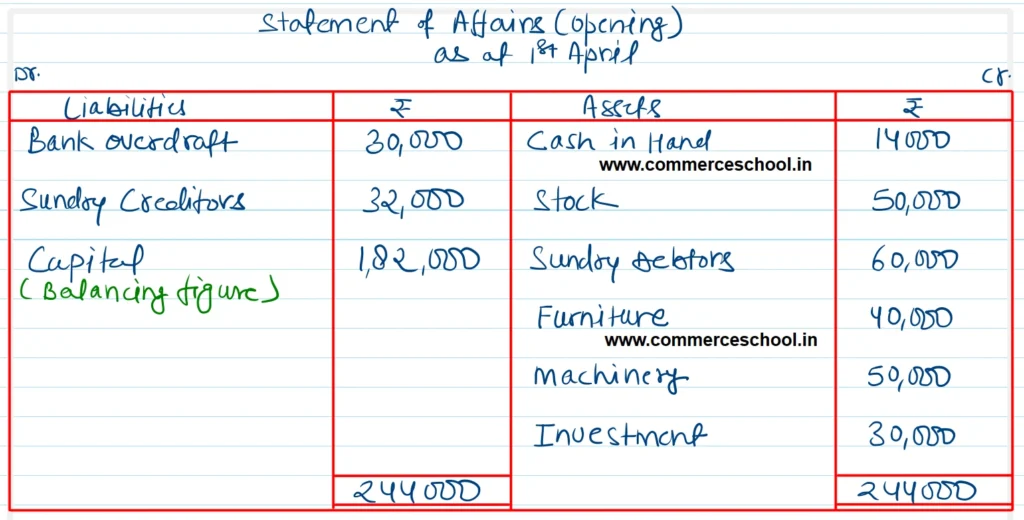 Statement of Affairs (opening)
as at 1st April
Dr. Cr.
Liabilities ₹ Assets ₹
Bank overdraft 30,000 Cash in Hand 14000
www.commerceschool.in
Sundry Creditors 32,000 Stock 50,000
Capital 1,82,000 Sundry debtors 60,000
(Balancing figure)
Furniture 40,000
www.commerceschool.in
Machinery 50,000
Investment 30,000
244000 244000